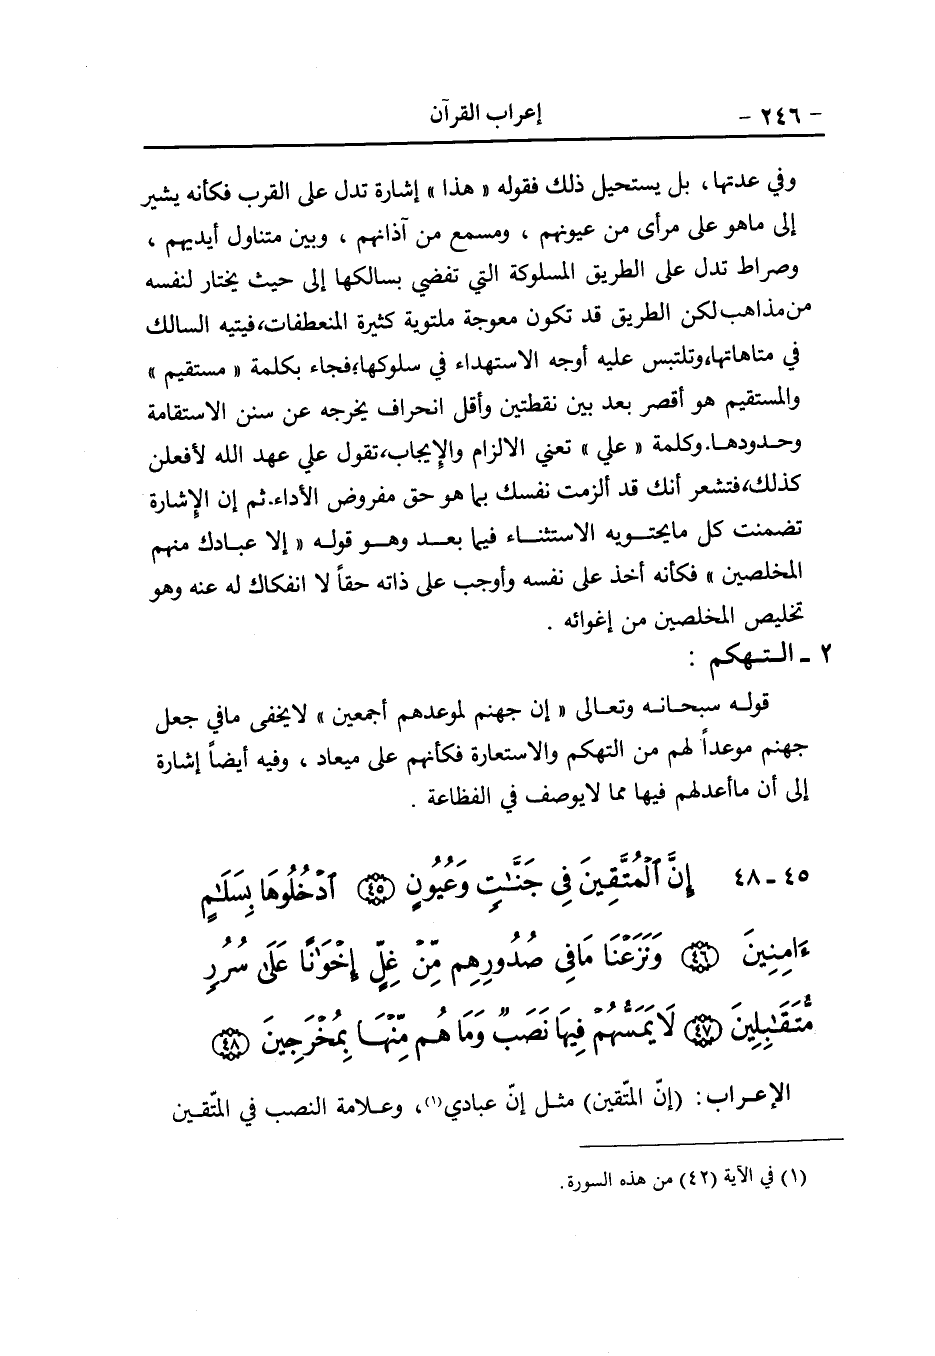 - ٢٤٦ - إعراب القرآن
وفي عدتها، بل يستحيل ذلك فقوله « هذا » إشارة تدل على القرب فكأنه يشير
إلى ماهو على مرأى من عيونهم ، ومسمع من آذانهم ، وبين متناول أيديهم ،
وصراط تدل على الطريق المسلوكة التي تفضي بسالكها إلى حيث يختار لنفسه
من مذاهب لكن الطريق قد تكون معوجة ملتوية كثيرة المنعطفات، فيتيه السالك
في متاهاتها، وتلتبس عليه أوجه الاستهداء في سلوكها؛ فجاء بكلمة « مستقيم »
والمستقيم هو أقصر بعد بين نقطتين وأقل انحراف يخرجه عن سنن الاستقامة
وحدودها. وكلمة « علي » تعني الالزام والإيجاب، تقول علي عهد الله لأفعلن
كذلك، فتشعر أنك قد ألزمت نفسك بما هو حق مفروض الأداء. ثم إن الإشارة
تضمنت كل مايحتويه الاستثناء فيما بعد وهو قوله « إلا عبادك منهم
المخلصين » فكأنه أخذ على نفسه وأوجب على ذاته حقاً لا انفكاك له عنه وهو
تخليص المخلصين من إغوائه .
٢ - التهكم :
قوله سبحانه وتعالى « إن جهنم لموعدهم أجمعين » لايخفى مافي جعل
جهنم موعداً لهم من التهكم والاستعارة فكأنهم على ميعاد ، وفيه أيضاً إشارة
إلى أن ماأعدلهم فيها مما لايوصف في الفظاعة .
٤٥ - ٤٨ إِنَّ ٱلْمُتَّقِينَ فِى جَنَّٰتٍ وَعُيُونٍ ﴿٤٥﴾ ٱدْخُلُوهَا بِسَلَٰمٍ
ءَامِنِينَ ﴿٤٦﴾ وَنَزَعْنَا مَافِى صُدُورِهِم مِّنْ غِلٍّ إِخْوَٰنًا عَلَىٰ سُرُرٍ
مُّتَقَٰبِلِينَ ﴿٤٧﴾ لَايَمَسُّهُمْ فِيهَا نَصَبٌ وَمَا هُم مِّنْهَا بِمُخْرَجِينَ ﴿٤٨﴾
الإعراب : (إنّ المتّقين) مثل إنّ عبادي(١)، وعلامة النصب في المتّقين
(١) في الآية (٤٢) من هذه السورة.